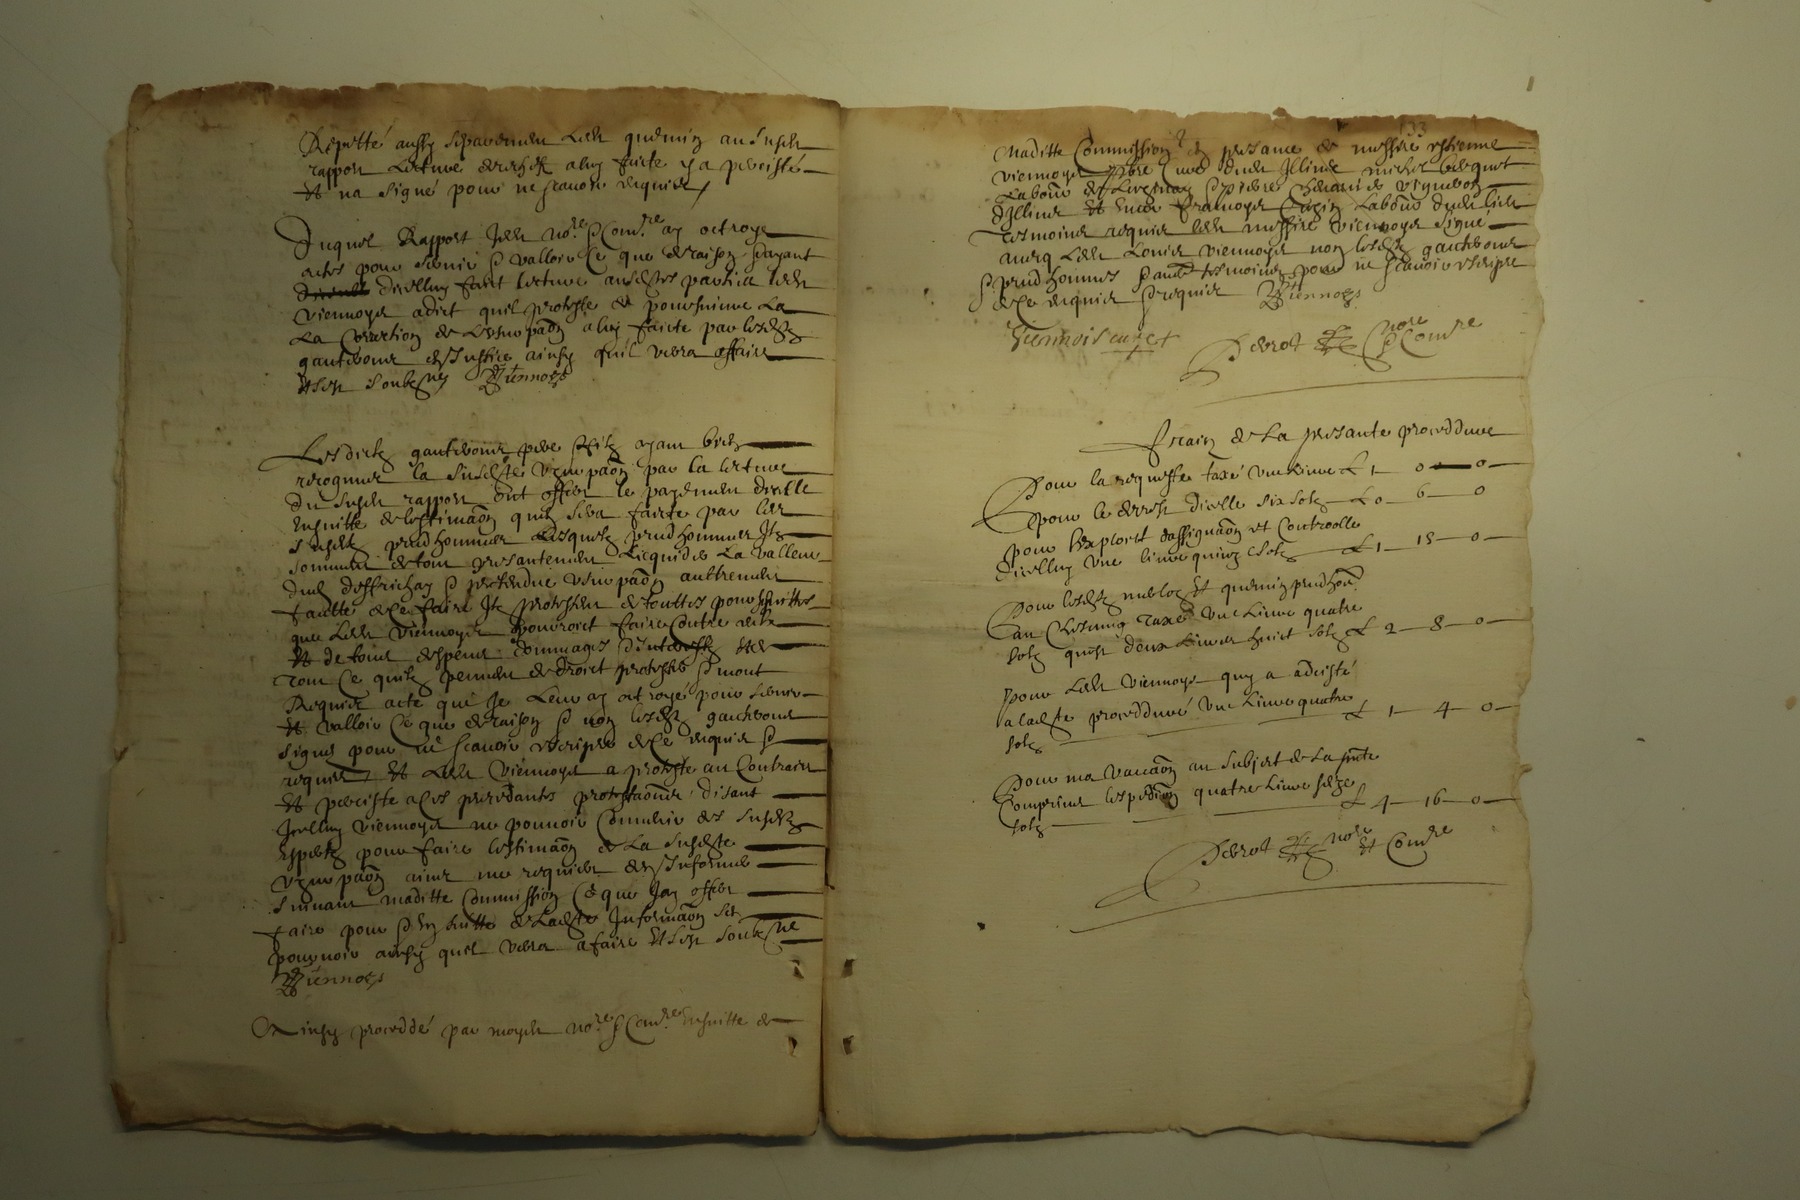 Repetté aussy separement ledt quemin au susdt
rapport lecture derechef a luy faicte y a percisté
et na signé pour ne scavoir requis
Duquel Rapport Je ledt no.re & Com.re ay octroyé
actes pour servir & valloir ce que de raison & ayant
dicelluy faict lecture ausdictes parties ledt
Viennoys a dict quil proteste de poursuivre la
la coraction de lesurpaõn a luy faicte par lesdtz
en Justice ainsy quil verra affaire
et sest soubz.né Viennoys
Lesdictz pere & filz ayant
recogneu la susdte usurpaõn par la lecture
du susdt rapport ont offert le payement dicelle
ensuitte de lestimaõn quen sera faicte par les
susdtz prudhommes lesquelz prudhommes Ilz
somment de tout presantement liquider la valleur
dudt deffrichay & pretendue usurpaõn aultrement
faulte de ce faire Ilz protestent de touttes poursuittes
que ledt Viennoys pouroict faire contre eulx
et de tous despens dommages & interestz et de
tout ce quilz peuvent de droict protester & mont
Requis acte que je leur ay octroyé pour servir
et valloir ce que de raison & non lesdtz
signé pour ne scavoir escripre de ce requis &
requis et ledt Viennoys a proteste au contraire
et perciste a ses precedantes protestaõns disant
Icelluy Viennoys ne pouvoir convenir des susdtz
expertz pour faire lestimaõn de la susdte
usurpaõn ains me requiert den Informer
suivant maditte commission ce que Jay offert
faire pour & en suitte de ladte Informaõn se
pourvoir ainsy quil verra a faire et sest soubz.né
Viennoys
Ainsy procedé par moydt no.re & Com.re ensuitte de
133
maditte Commission & en presance de messire estienne
viennoys pbre Curé dudt Illins michel
Labour de & pierre vigneron
dIllins et Labour dudt lieu
tesmoins requis ledt messire viennoys signé
avecq ledt Louis viennoys non lesdtz
& prudhommes & autres tesmoins pour ne scavoir escripre
de ce requis & requis Viennoys
Viennois curé
Perrot no.re & Com.re
Frais de la presante proceddure
Pour la requeste taxé une livre £ 1 — 0 — 0
& pour le decret dicelle six solz £ 0 — 6 — 0
pour lexploict dassignaõn et Controolle
dicelluy une livre quinze solz £ 1 — 15 — 0
Pour lesdtz et quemin prudhoes
au chesung taxé une livre quatre
solz quest deux livres huict solz £ 2 — 8 — 0
Pour ledt Viennoys quy a adcisté
a ladte proceddure une livre quatre
solz £ 1 — 4 — 0
Pour ma vacaõn au subject de la pnte
comprins lexpediõn quatre livres seize
solz £ 4 — 16 — 0
Perrot no.re et Com.re